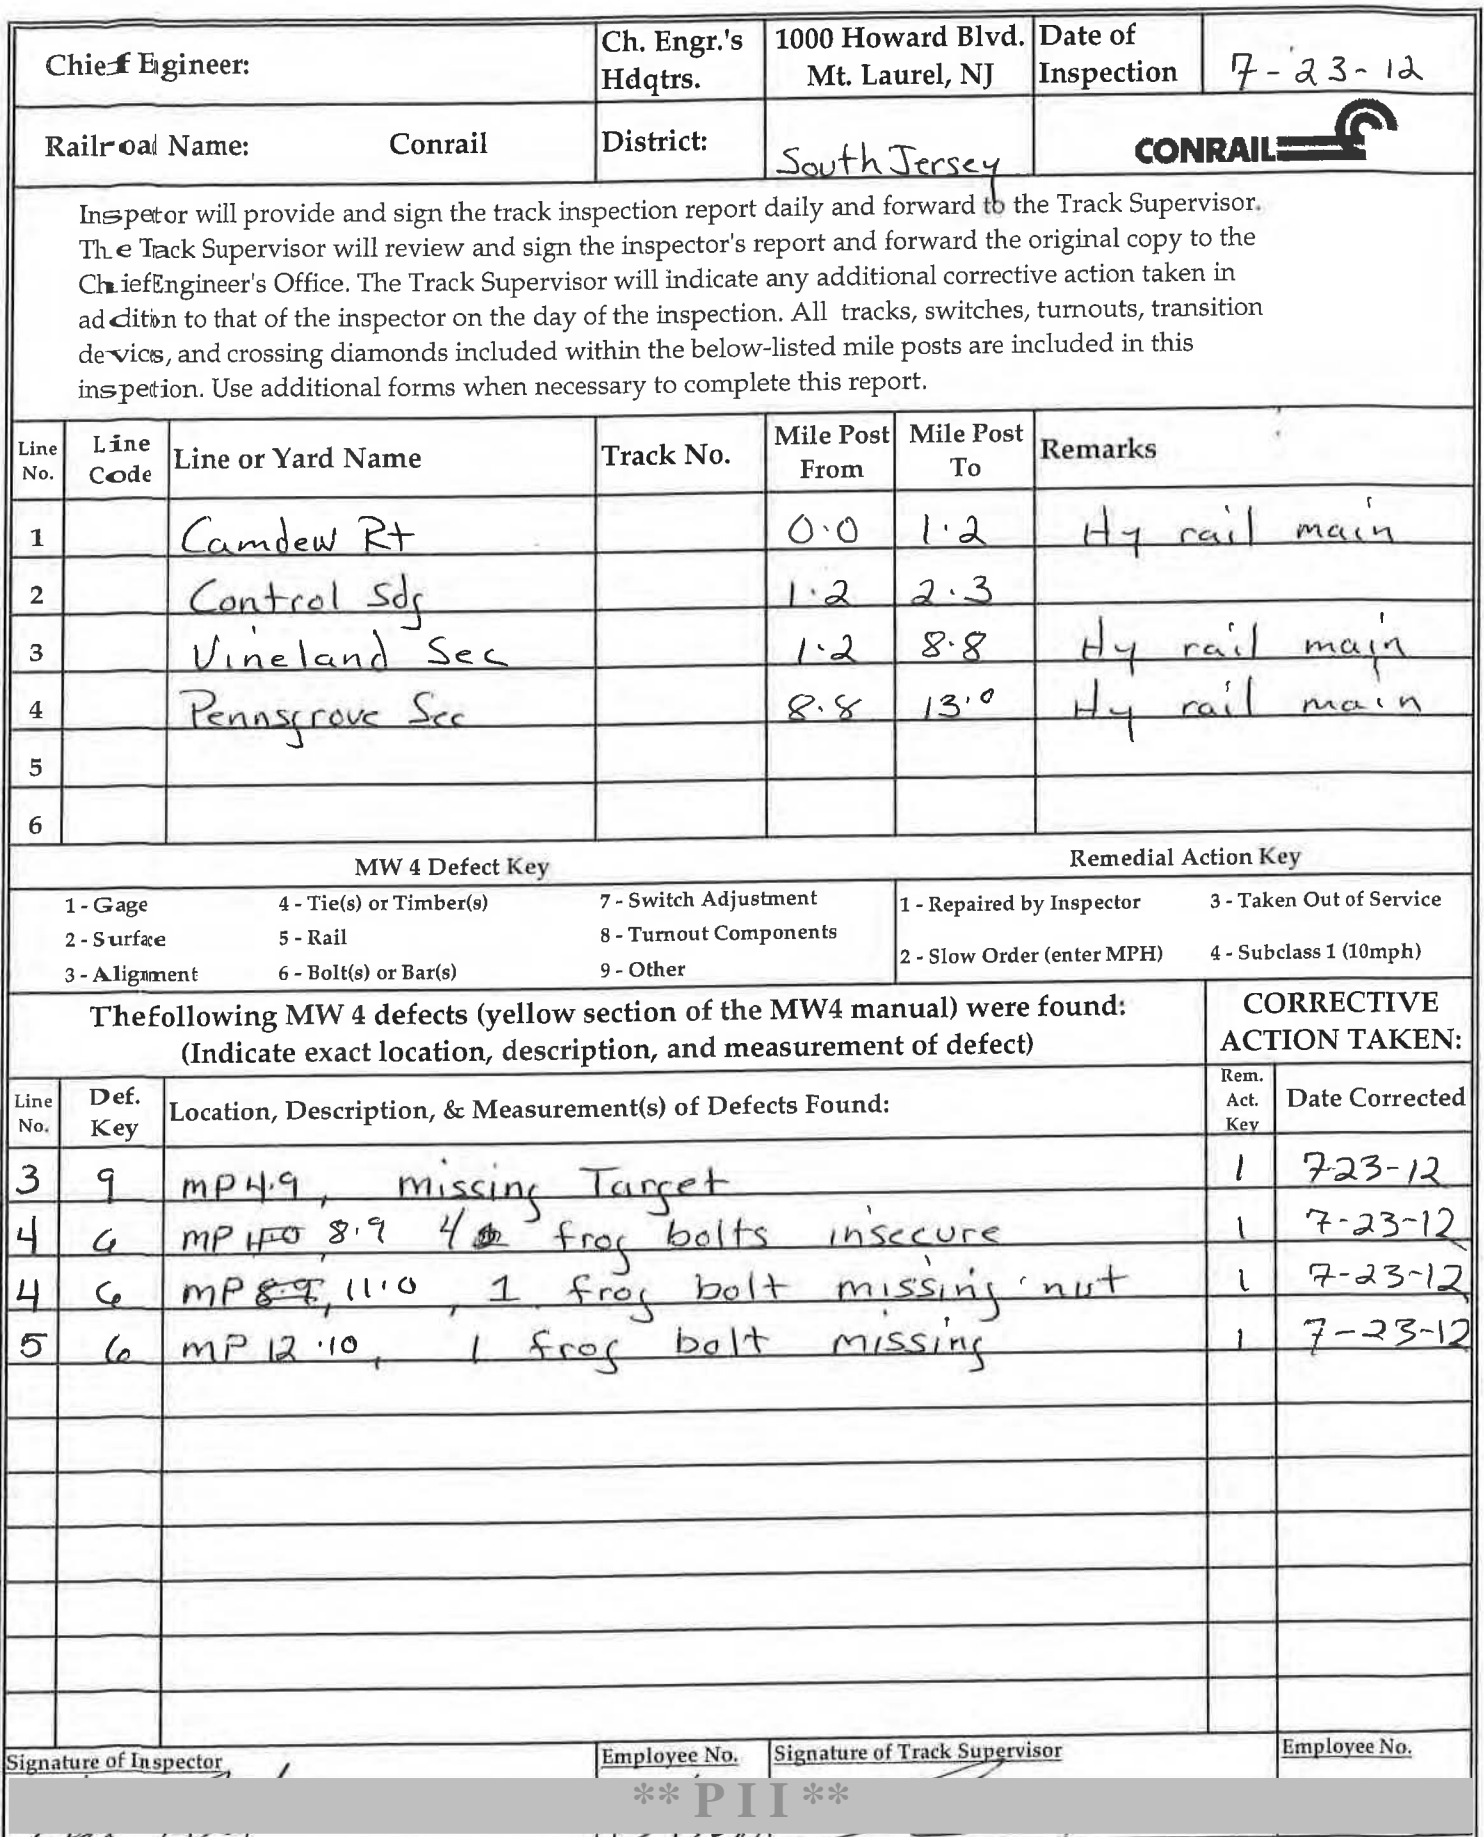 Chief Egineer:
Ch. Engr.'s Hdqtrs.
1000 Howard Blvd. Mt. Laurel, NJ
Date of Inspection
7-23-12
Railroad Name: Conrail
District:
South Jersey
CONRAIL
Inspetor will provide and sign the track inspection report daily and forward to the Track Supervisor.
The Track Supervisor will review and sign the inspector's report and forward the original copy to the
ChiefEngineer's Office. The Track Supervisor will indicate any additional corrective action taken in
addition to that of the inspector on the day of the inspection. All tracks, switches, turnouts, transition
devics, and crossing diamonds included within the below-listed mile posts are included in this
inspetion. Use additional forms when necessary to complete this report.
Line No. Line Code Line or Yard Name Track No. Mile Post From Mile Post To Remarks
1 Camdew Rt 0.0 1.2 Hy rail main
2 Control Sdg 1.2 2.3
3 Vineland Sec 1.2 8.8 Hy rail main
4 Pennsgrove Sec 8.8 13.0 Hy rail main
5
6
MW 4 Defect Key Remedial Action Key
1 - Gage 4 - Tie(s) or Timber(s) 7 - Switch Adjustment 1 - Repaired by Inspector 3 - Taken Out of Service
2 - Surface 5 - Rail 8 - Turnout Components
2 - Slow Order (enter MPH) 4 - Subclass 1 (10mph)
3 - Alignment 6 - Bolt(s) or Bar(s) 9 - Other
Thefollowing MW 4 defects (yellow section of the MW4 manual) were found:
(Indicate exact location, description, and measurement of defect)
CORRECTIVE ACTION TAKEN:
Line No. Def. Key Location, Description, & Measurement(s) of Defects Found: Rem. Act. Key Date Corrected
3 9 MP 4.9, missing Target 1 7-23-12
4 6 MP 8.9 4 frog bolts insecure 1 7-23-12
4 6 MP 8.9, 11.0, 1 frog bolt missing nut 1 7-23-12
5 6 MP 12.10, 1 frog bolt missing 1 7-23-12
Signature of Inspector Employee No. Signature of Track Supervisor Employee No.
** P I I **